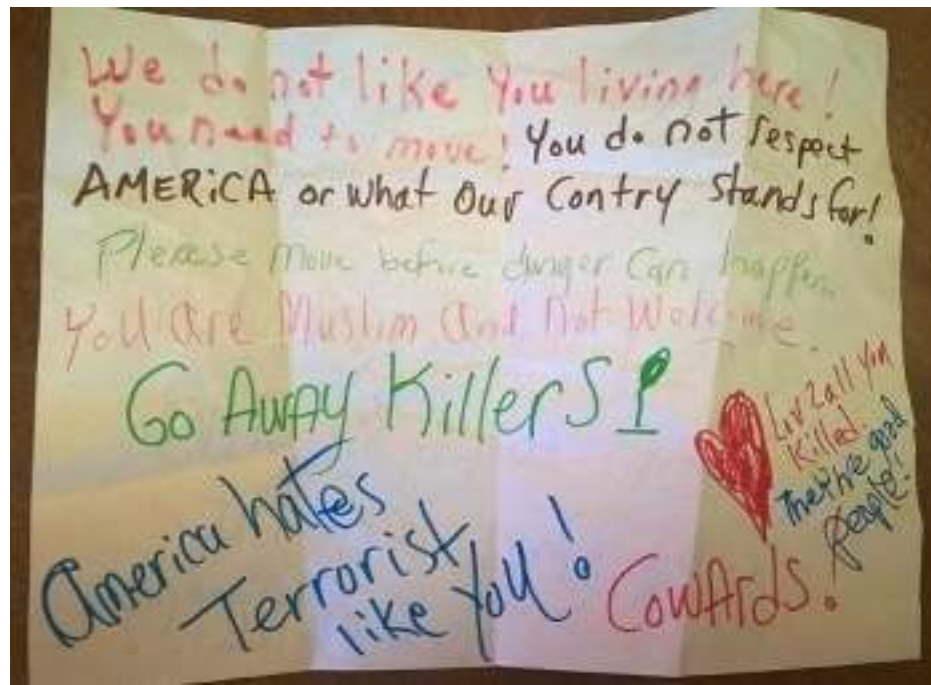 We do not like You living here!
You need to move! You do not respect
AMERiCA or what Our Contry Stands for!
Please Move before danger Can happen.
You Are Muslim And Not Welcome.
Go AWAy KillerS!
Luv 2 all you
Killed.
They're good
people!
America hates
Terrorist
like You!
CowArds!